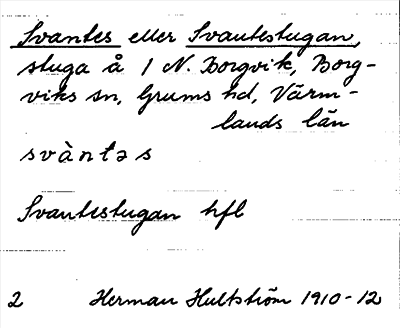 Svantes eller Svantestugan,
stuga å 1 N. Borgvik, Borg-
viks sn, Grums hd, Värm-
lands län
svàntəs
Svantestugan hfl
2 Herman Hultström 1910-12